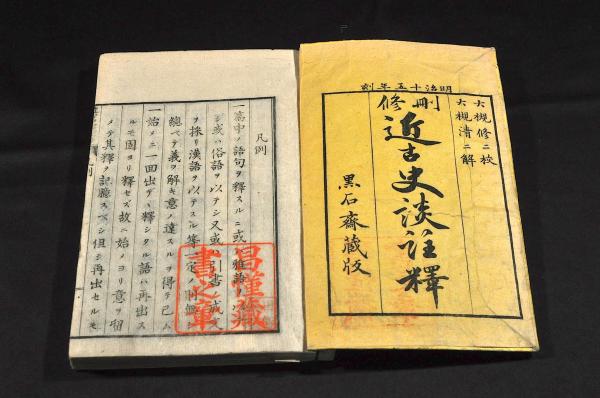 明治十五年刻
大槻修二校
大槻清二解
刪修
近古史談註釋
黒石齋藏版
凡例
一篇中ノ語句ヲ釋スルニ或ハ雅語ヲ以テ
シ或ハ俗語ヲ以テシ又或ハ引書ノ成文
ヲ採リ漢語ヲ以テスル等一定ノ
總ベテ義ヲ解キ意ノ達スルヲ得テ已ム
一始メニ一回出デヽ釋シタル語ハ再出ス
ルモ固ヨリ釋セズ故ニ始メヨリ意ヲ留
メテ其釋ヲ記聽スベシ但シ再出セルモ